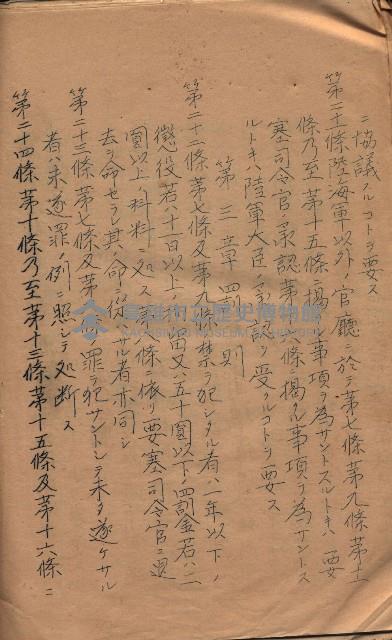 ニ協議スルコトヲ要ス
第二十一條陸海軍以外ノ官廳ニ於テ第七條第九條第十
條乃至第十五條ニ揭クル事項ヲ為サントスルトキハ要
塞司令官ノ承認第八條ニ揭クル事項ヲ為サントス
ルトキハ陸軍大臣ノ承認ヲ受クルコトヲ要ス
第三章 罰則
第二十二條第七條及第九條ノ禁ヲ犯シタル者ハ一年以下ノ
懲役若ハ十一日以上ノ留又ハ五十圓以下ノ罰金若ハ二
圓以上ノ科料ニ処ス 條ニ依リ要塞司令官ニ退
去ヲ命セラレ其ノ命ニ從ハサル者亦同シ
第二十三條第七條及第 條ノ罪ヲ犯サントシテ未タ遂ケサル
者ハ未遂罪ノ例ニ照シテ処断ス
第二十四條第十條乃至第十三條第十五條及第十六條ニ
高雄市立歷史博物館
KAOHSIUNG MUSEUM OF HISTORY